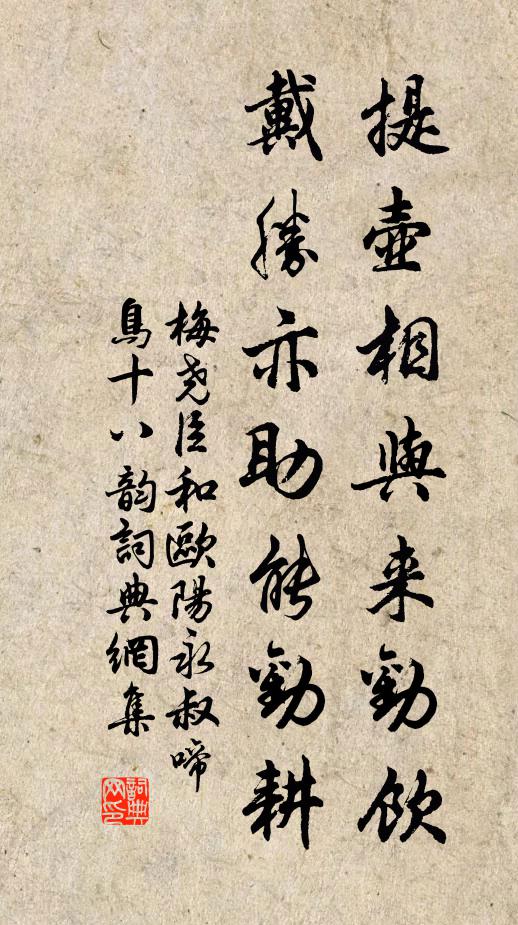 提壺相與来勸飲
戴勝亦助能勸耕
梅尧臣和歐陽永叔啼
鳥十八韵詞典網集
詞典
网印